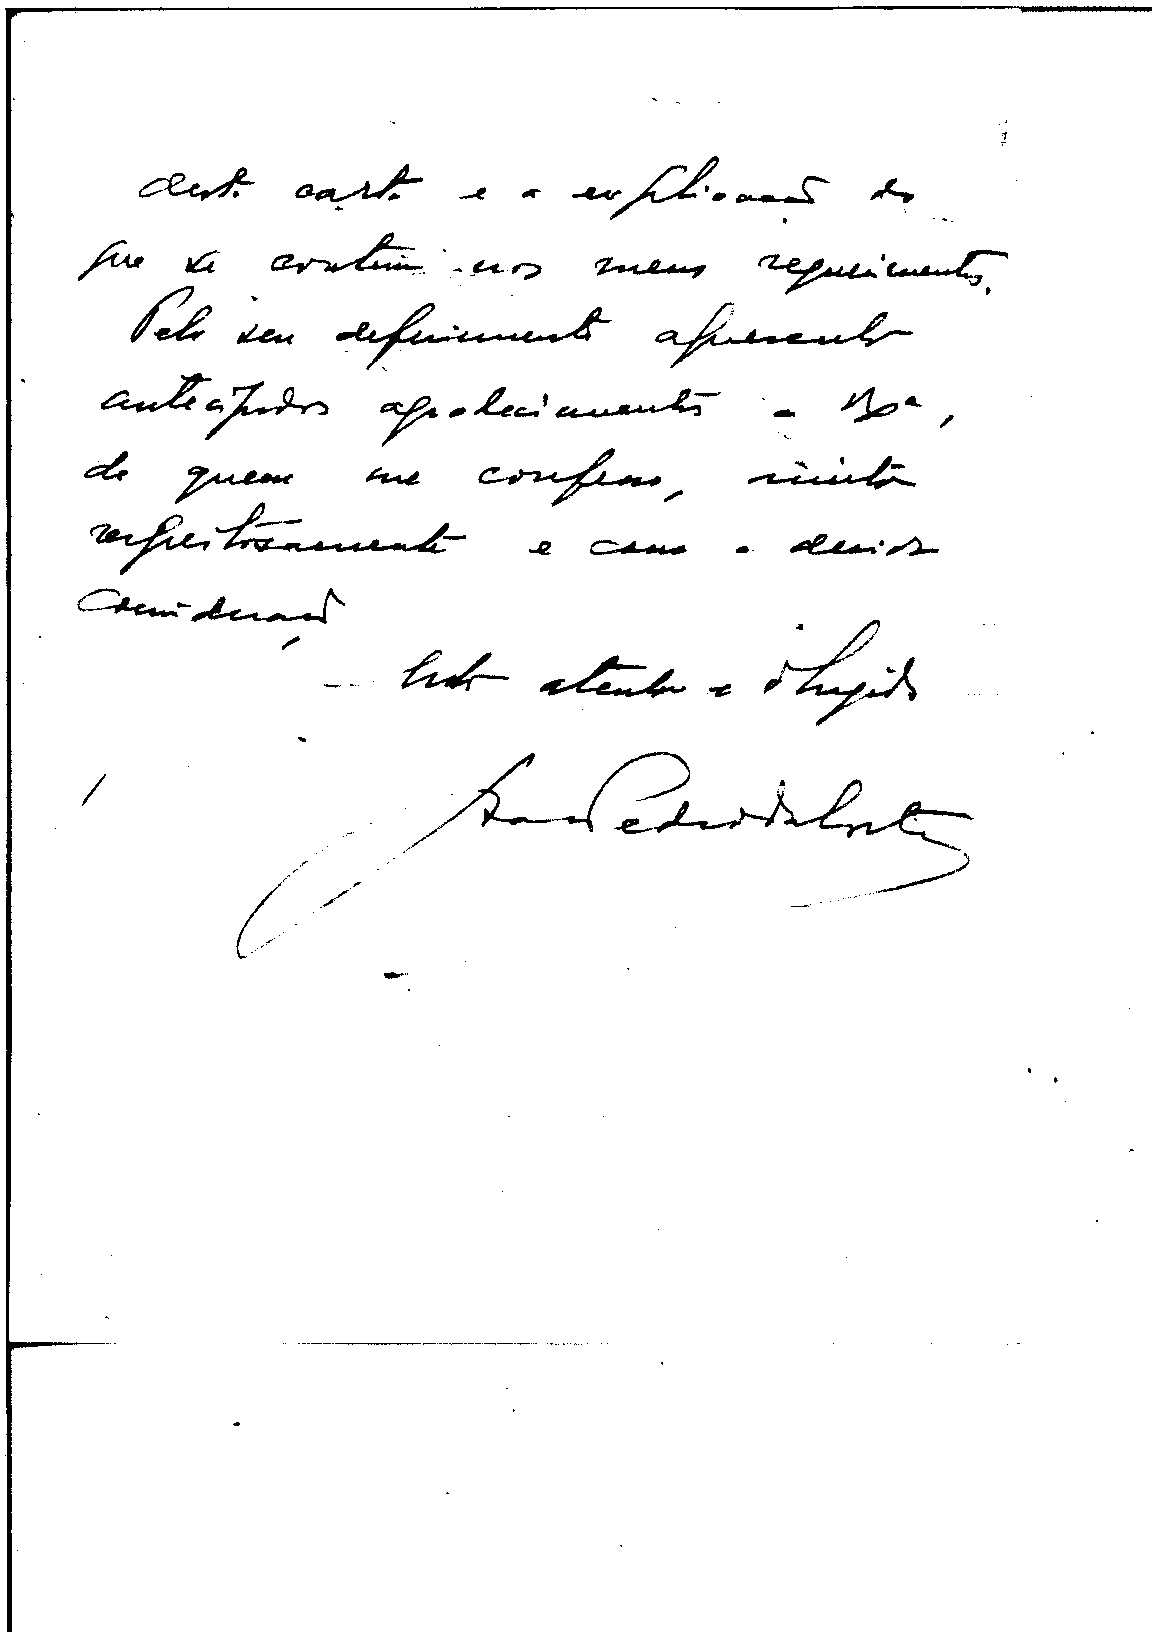 desta carta e a explicação do
que se contem nos meus requerimentos.
Pelo seu deferimento apresento
antecipados agradecimentos a V. Ex.ª,
de quem me confesso, muito
respeitosamente e com a devida
consideração,
atento e obrigado
Pedro da Costa